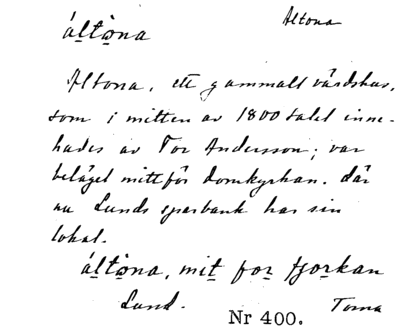 áltòna Altona
Altona, ett gammalt värdshus,
som i mitten av 1800 talet inne-
hades av Tor Andersson; var
beläget mitt för domkyrkan, där
nu Lunds sparbank har sin
lokal.
áltòna, mit for tjorkan
Lund. Torna
Nr 400.